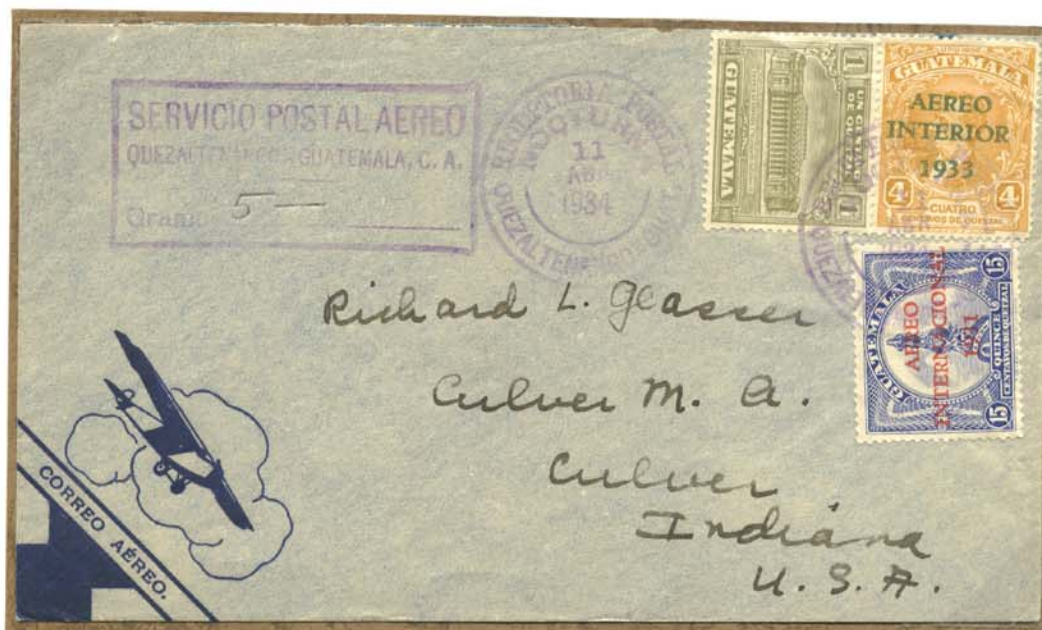 SERVICIO POSTAL AEREO
QUEZALTENANGO, GUATEMALA, C. A.
Grams 5 —
POSTAL
NOCTURNA
11
1934
QUEZALTENANGO
GUATEMALA
UN CENTAVO
1 1
GUATEMALA
AEREO
INTERIOR
1933
4 CUATRO 4
CENTAVOS DE QUETZAL
GUATEMALA
AEREO
INTERNACIONAL
1931
15 QUINCE 15
CENTAVOS DE QUETZAL
Richard L. Glasser
Culver M. A.
Culver,
Indiana
U. S. A.
CORREO AÉREO.